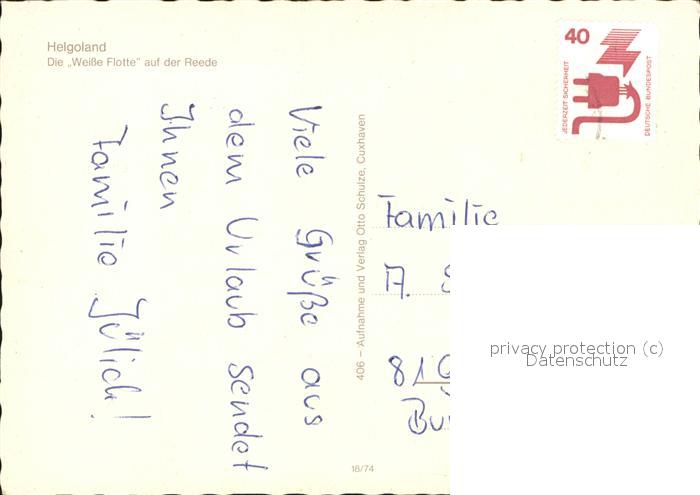 Helgoland
Die „Weiße Flotte" auf der Reede
Viele Grüße aus
dem Urlaub sendet
Ihnen
Familie Jülich!
406 – Aufnahme und Verlag Otto Schulze, Cuxhaven
18/74
40
JEDERZEIT SICHERHEIT
DEUTSCHE BUNDESPOST
Familie
A.
privacy protection (c)
Datenschutz